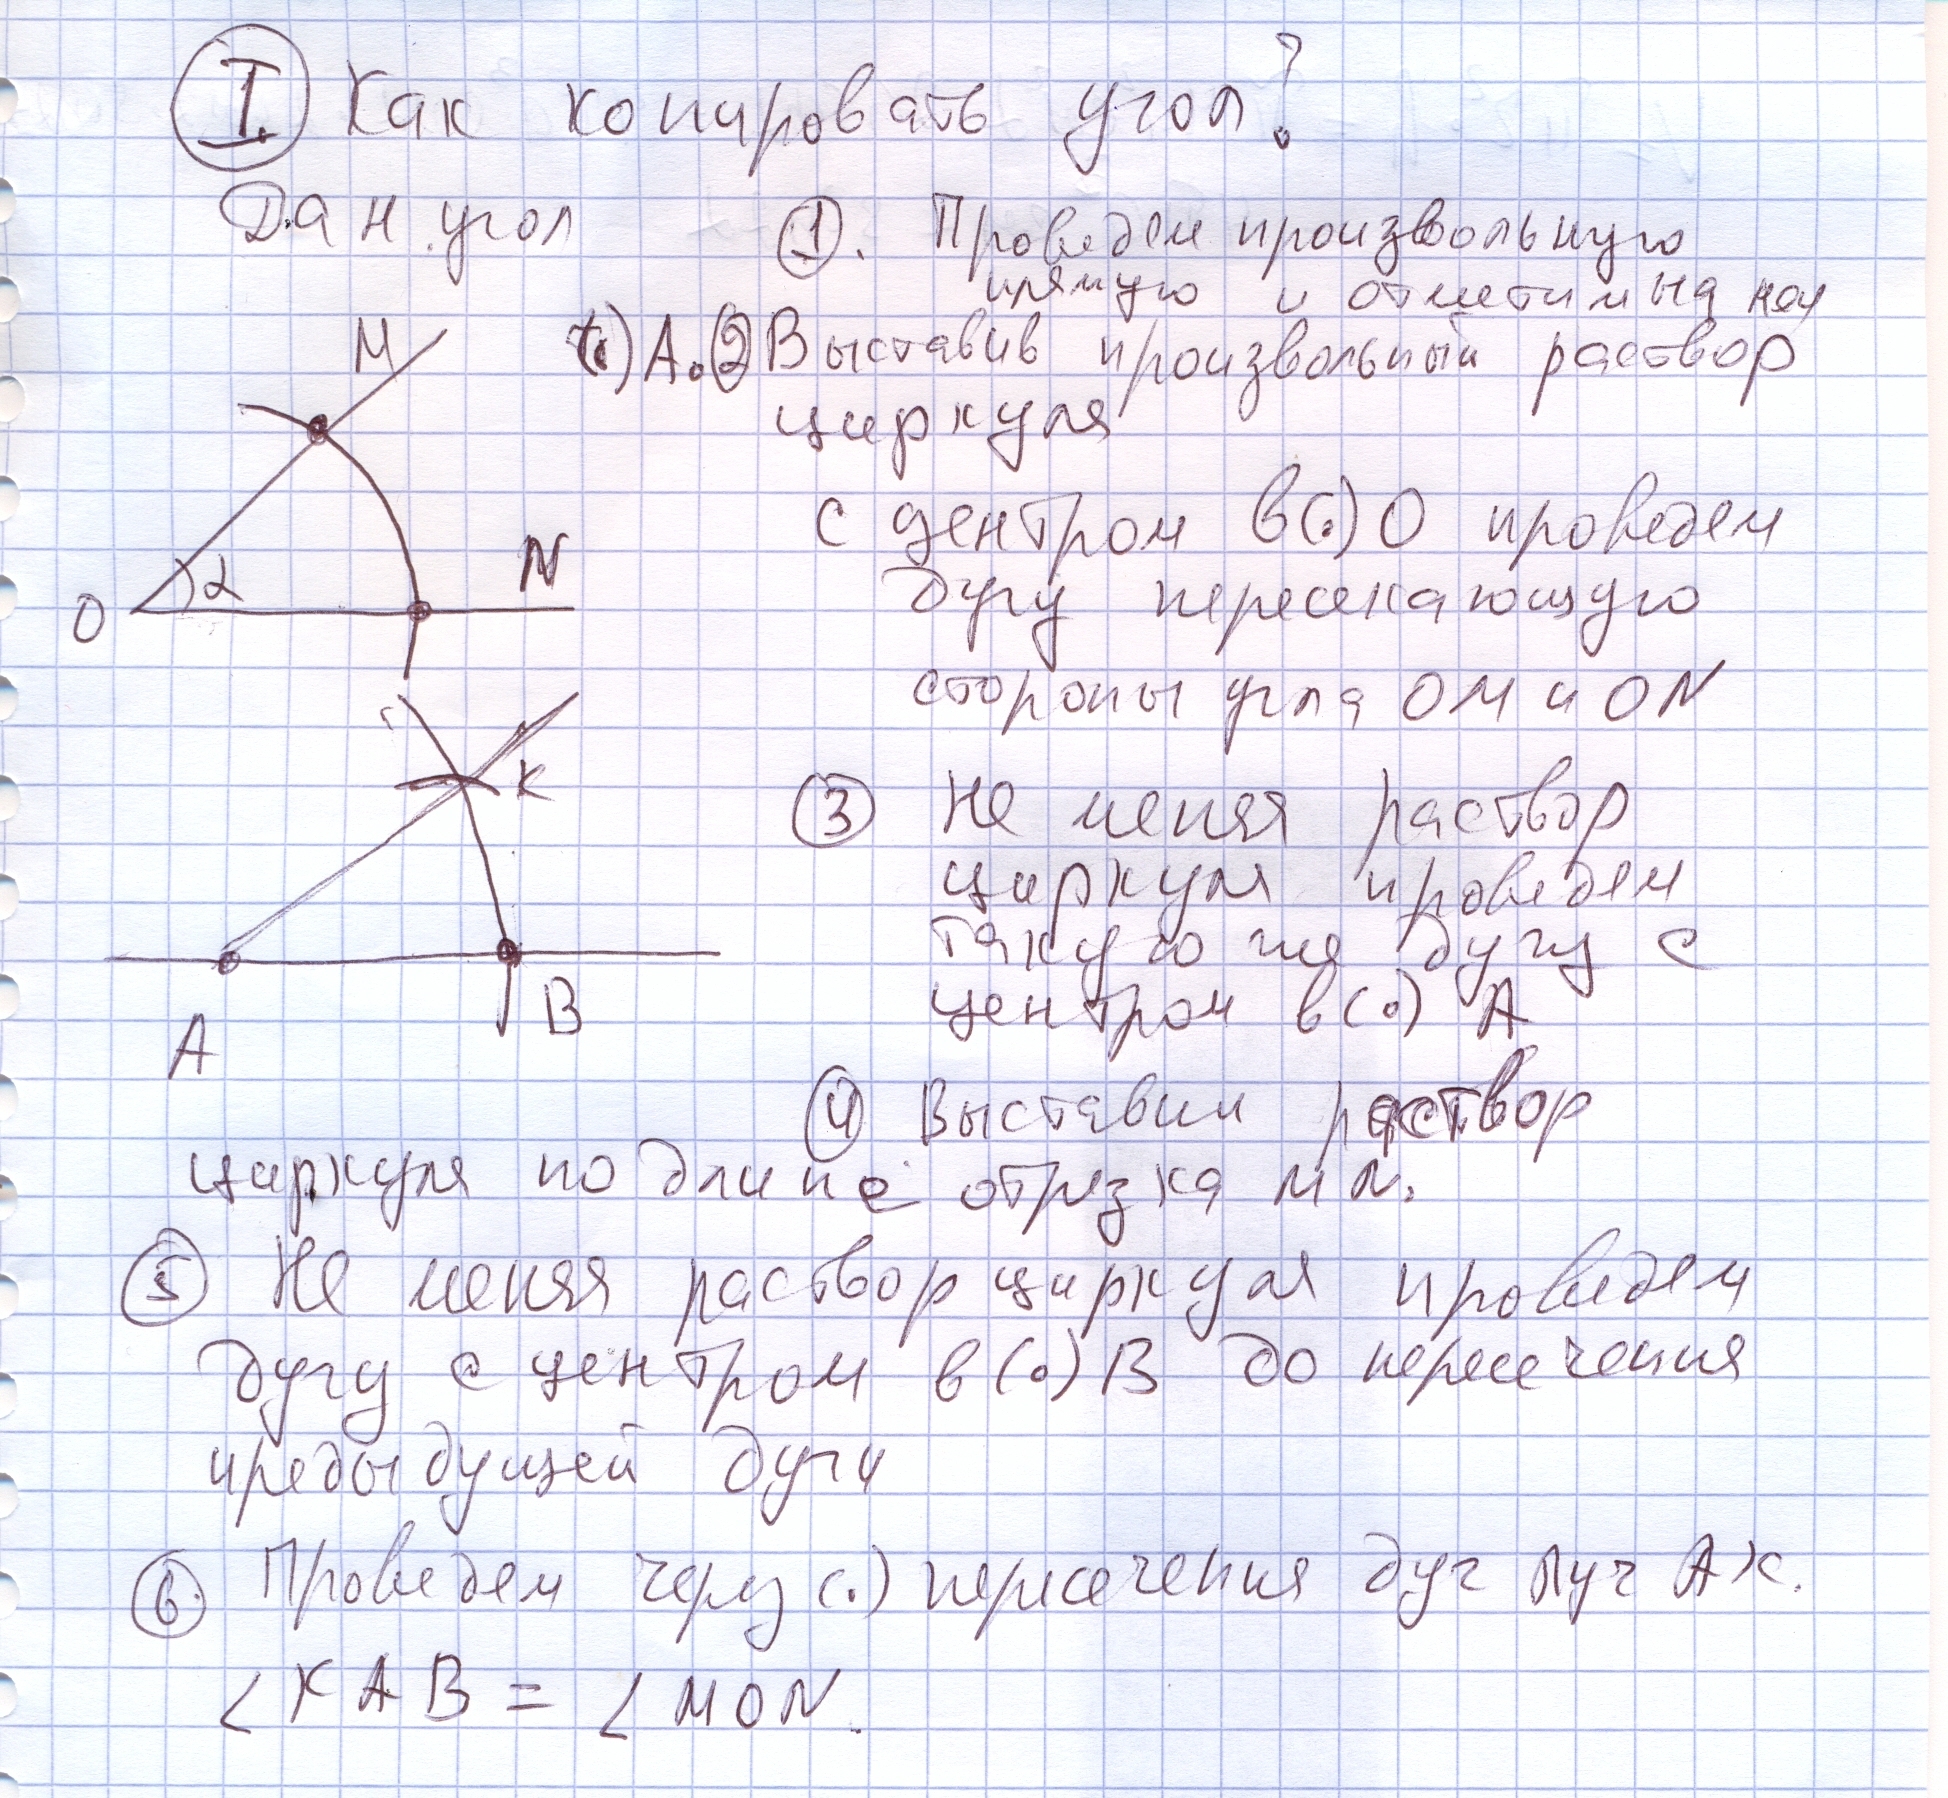 I. Как копировать угол?
Дан угол
1. Проведем произвольную
прямую и отметим на ней
(.) A. 2 Выставив произвольный раствор
циркуля
с центром в (.) O проведем
дугу пересекающую
стороны угла OM и ON
M
N
O
α
3 Не меняя раствор
циркуля проведем
такую же дугу с
центром в (.) A
K
A
B
4 Выставим раствор
циркуля по длине отрезка MN.
5 Не меняя раствор циркуля проведем
дугу с центром в (.) B до пересечения
предыдущей дуги
6. Проведем через (.) пересечения дуг луч AK.
∠KAB = ∠MON.